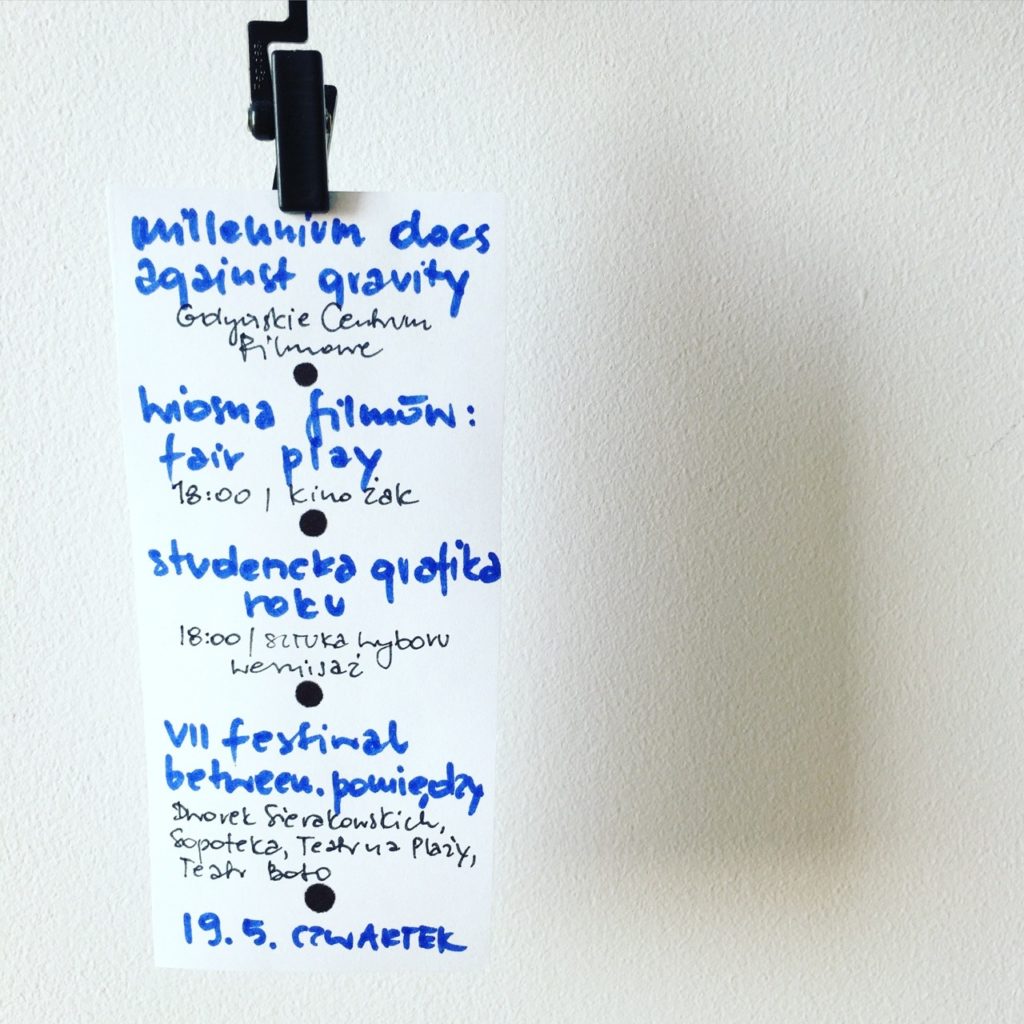 millennium docs
against gravity
Gdyńskie Centrum
Filmowe
wiosna filmów:
fair play
18:00 | kino żak
studencka grafika
roku
18:00 | sztuka wyboru
wernisaż
VII festiwal
between.pomiędzy
Dworek Sierakowskich,
Sopoteka, Teatr na Plaży,
Teatr Boto
19.5. CZWARTEK